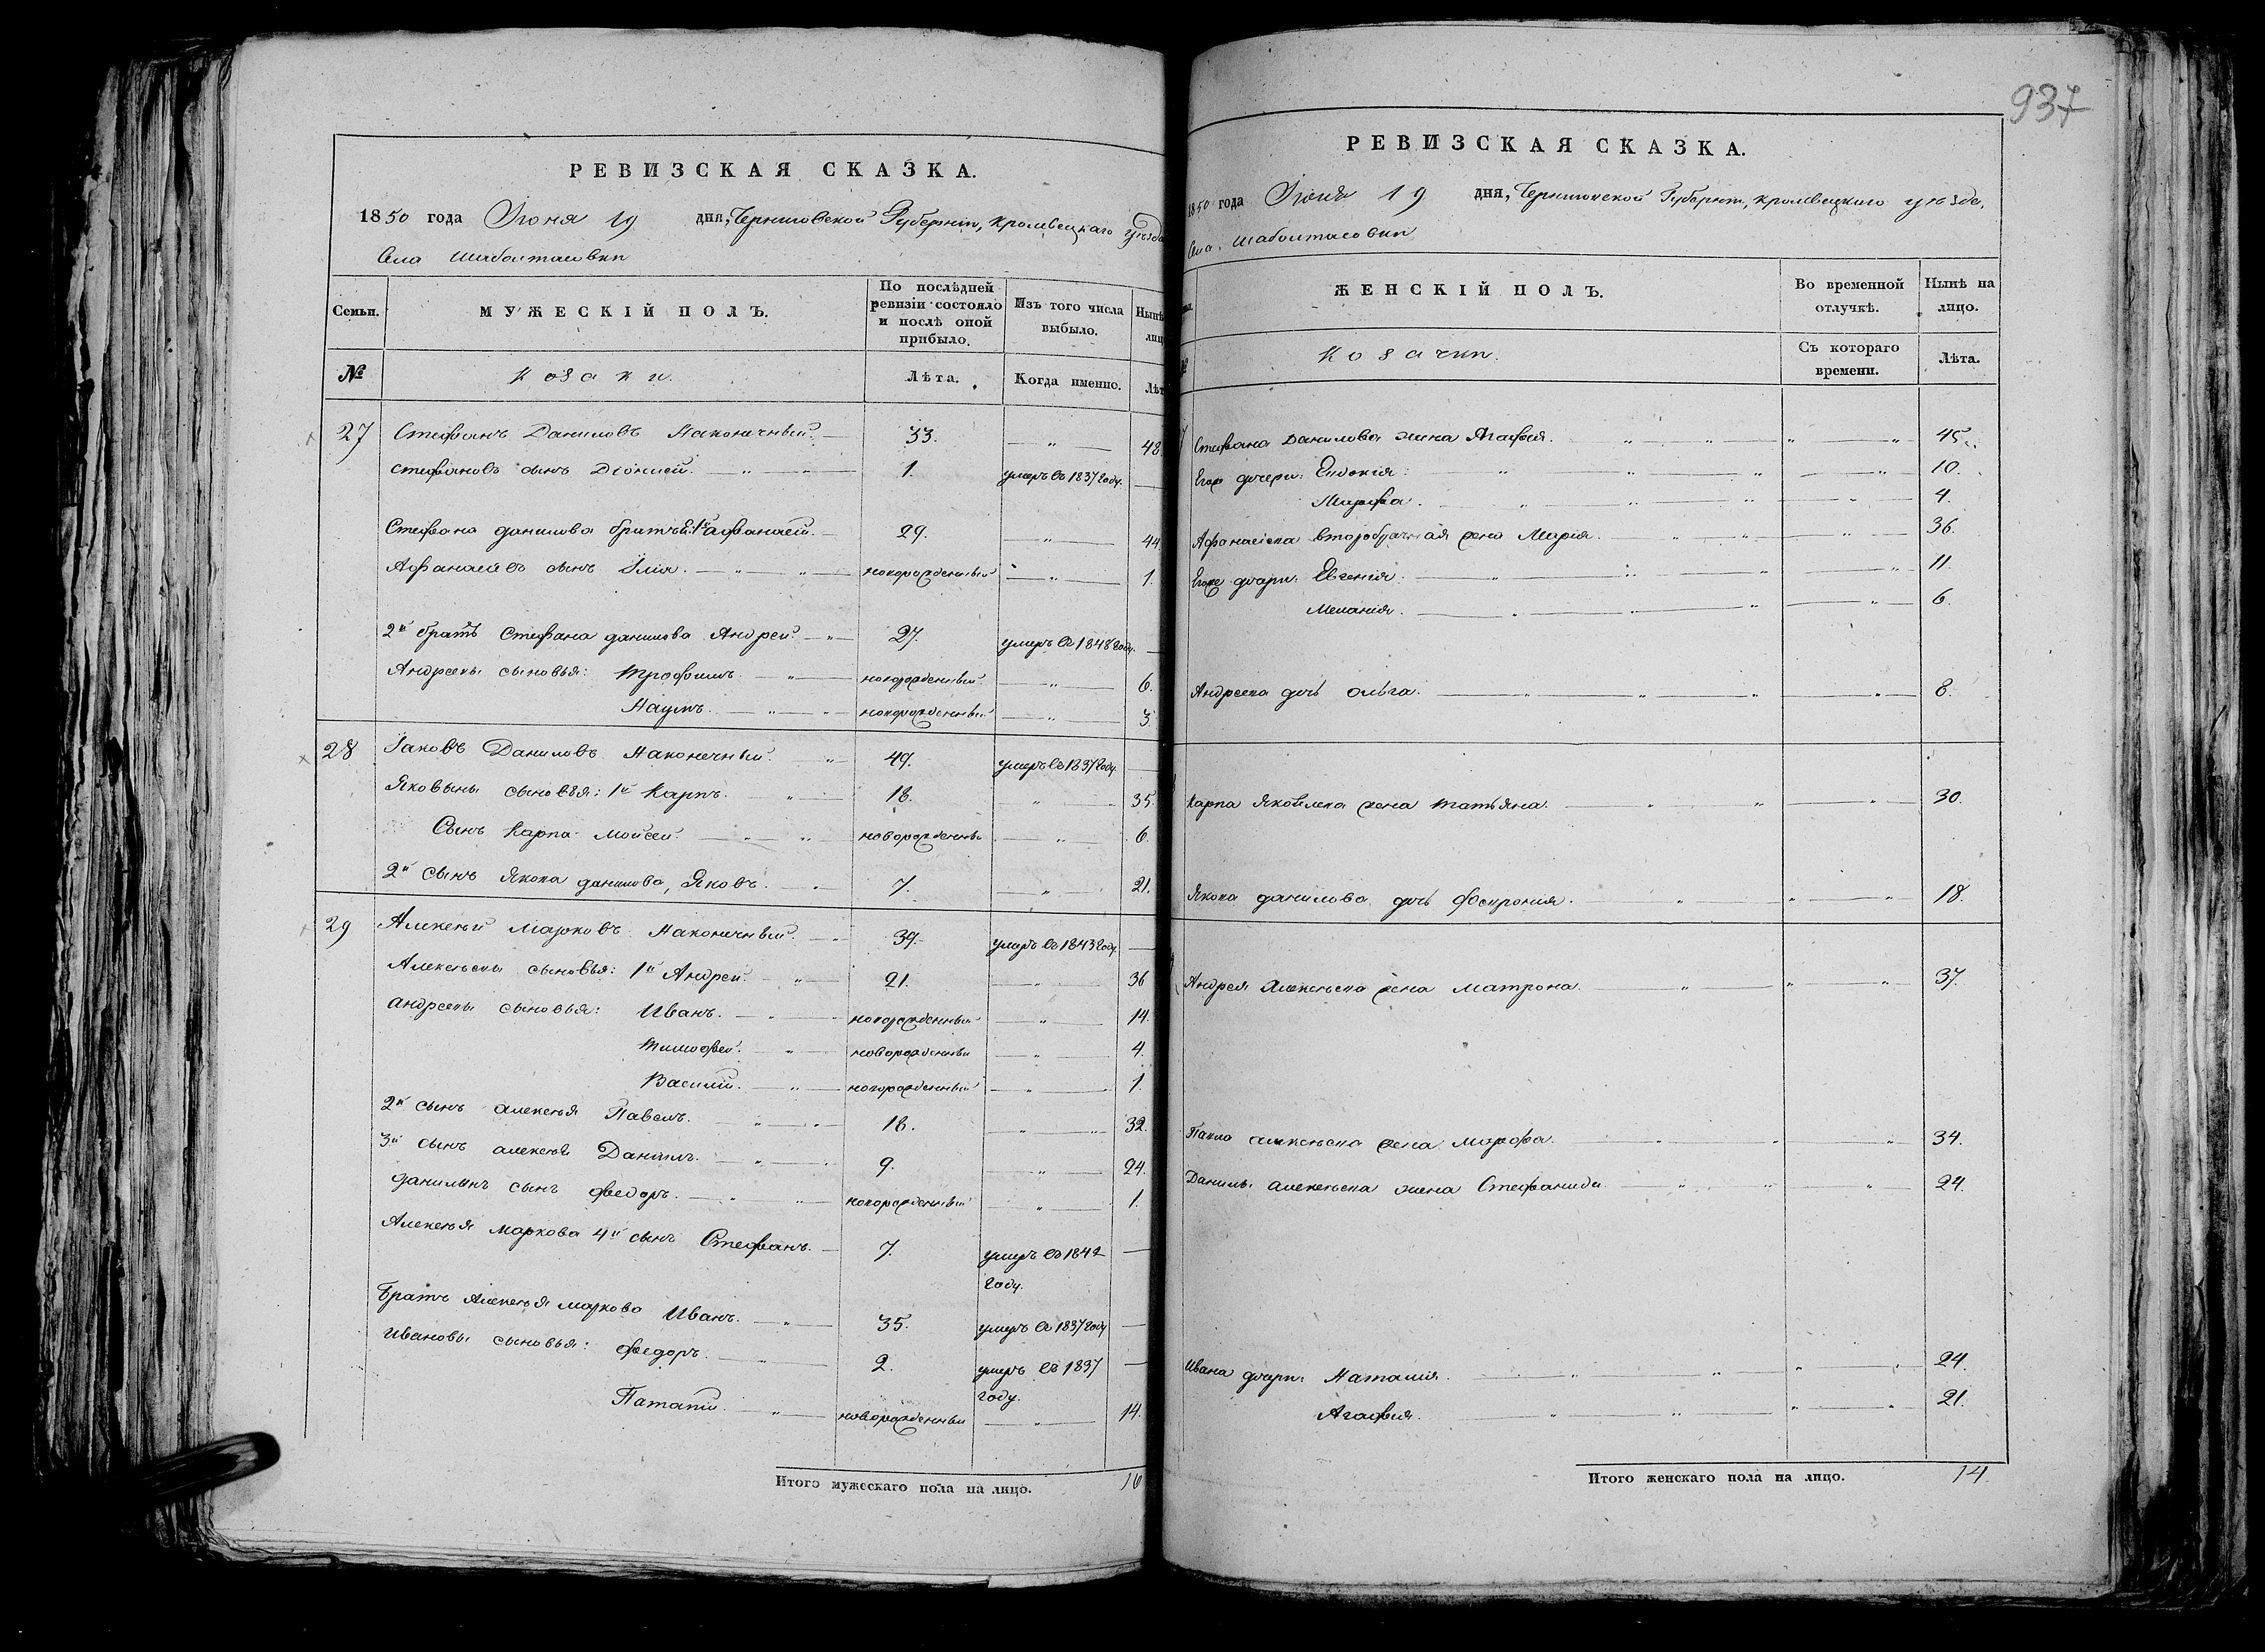 937
РЕВИЗСКАЯ СКАЗКА.
1850 года Июня 19 дня, Черниговской Губерніи, Кролевецкаго Уѣзда
Села Шабалтасовки
Семьи. МУЖЕСКІЙ ПОЛЪ. По послѣдней ревизіи состояло и послѣ оной прибыло. Изъ того числа выбыло. Нынѣ лиц
№ Козаки. Лѣта. Когда именно. Лѣт
27 Стефанъ Даниловъ Наконечный. 33. — „ — 48
Стефановъ сынъ Діонисій. — „ — 1. умеръ въ 1837 году. —
Стефана Данилова братья: 1й Афанасій. — 29. — „ — 44
Афанасіевъ сынъ Илія. — „ — новорожденный — „ — 1.
2й братъ Стефана Данилова Андрей. — „ — 27. умеръ въ 1848 году. —
Андреевы сыновья: Трофимъ. — „ — новорожденный — „ — 6.
Наумъ. — „ — новорожденный — „ — 3
28 Іаковъ Даниловъ Наконечный. „ — 49. умеръ въ 1837 году. —
Яковвы сыновья: 1й Карпъ. — „ — 18. „ — 35.
Сынъ Карпа Мойсей. — „ — новорожденны — „ — 6.
2й сынъ Якова Данилова, Яковъ. — „ 7. — „ — 21.
29 Алексѣй Марковъ Наконечный. — „ 39. умеръ въ 1843 году. —
Алексѣевы сыновья: 1й Андрей. — „ — 21. — „ — 36
Андреевы сыновья: Иванъ. — „ — новорожденный — „ — 14.
Тимофей. — „ — новорожденны — „ — 4.
Василій. — „ — новорожденный — „ — 1.
2й сынъ Алексѣя Павелъ. — „ — 18. — „ — 32.
3й сынъ Алексѣя Даніилъ. — „ — 9. — „ — 24.
Данилынъ сынъ Федоръ. — „ — новорожденный — „ — 1.
Алексѣя Маркова 4й сынъ Стефанъ. — 7. умеръ въ 1842 году. —
Братъ Алексѣя Маркова Иванъ. — „ — 35. умеръ въ 1837 году —
Ивановы сыновья: Федоръ. — „ — 2. умеръ въ 1837 году. —
Патапій. — „ — новорожденны — „ — 14.
Итого мужескаго пола на лицо. 16
РЕВИЗСКАЯ СКАЗКА.
1850 года Июня 19 дня, Черниговской Губерніи, Кролевецкаго уѣзда,
Села Шабалтасовки
ЖЕНСКІЙ ПОЛЪ. Во временной отлучкѣ. Нынѣ на лицо.
№ Козачки. Съ котораго времени. Лѣта.
Стефана Данилова жена Агафія. „ — 45.
Егоже дочери: Евдокія: „ — 10.
Марфа. „ — 4.
Афанасіева второбрачная жена Марія. „ — 36.
Егоже дочери: Евгенія. „ — 11.
Меланія. „ — 6.
Андреева дочь Ольга. „ — 8.
Карпа Яковлева жена Татьяна. „ — 30.
Якова Данилова дочь Февронія. „ — 18.
Андрея Алексѣева жена Матрона. „ — 37.
Павла Алексѣева жена Марфа. „ — 34.
Данилы Алексѣева жена Стефанида. „ — 24.
Ивана дочери: Наталія. „ — 24.
Агафія. „ — 21.
Итого женскаго пола на лицо. 14.